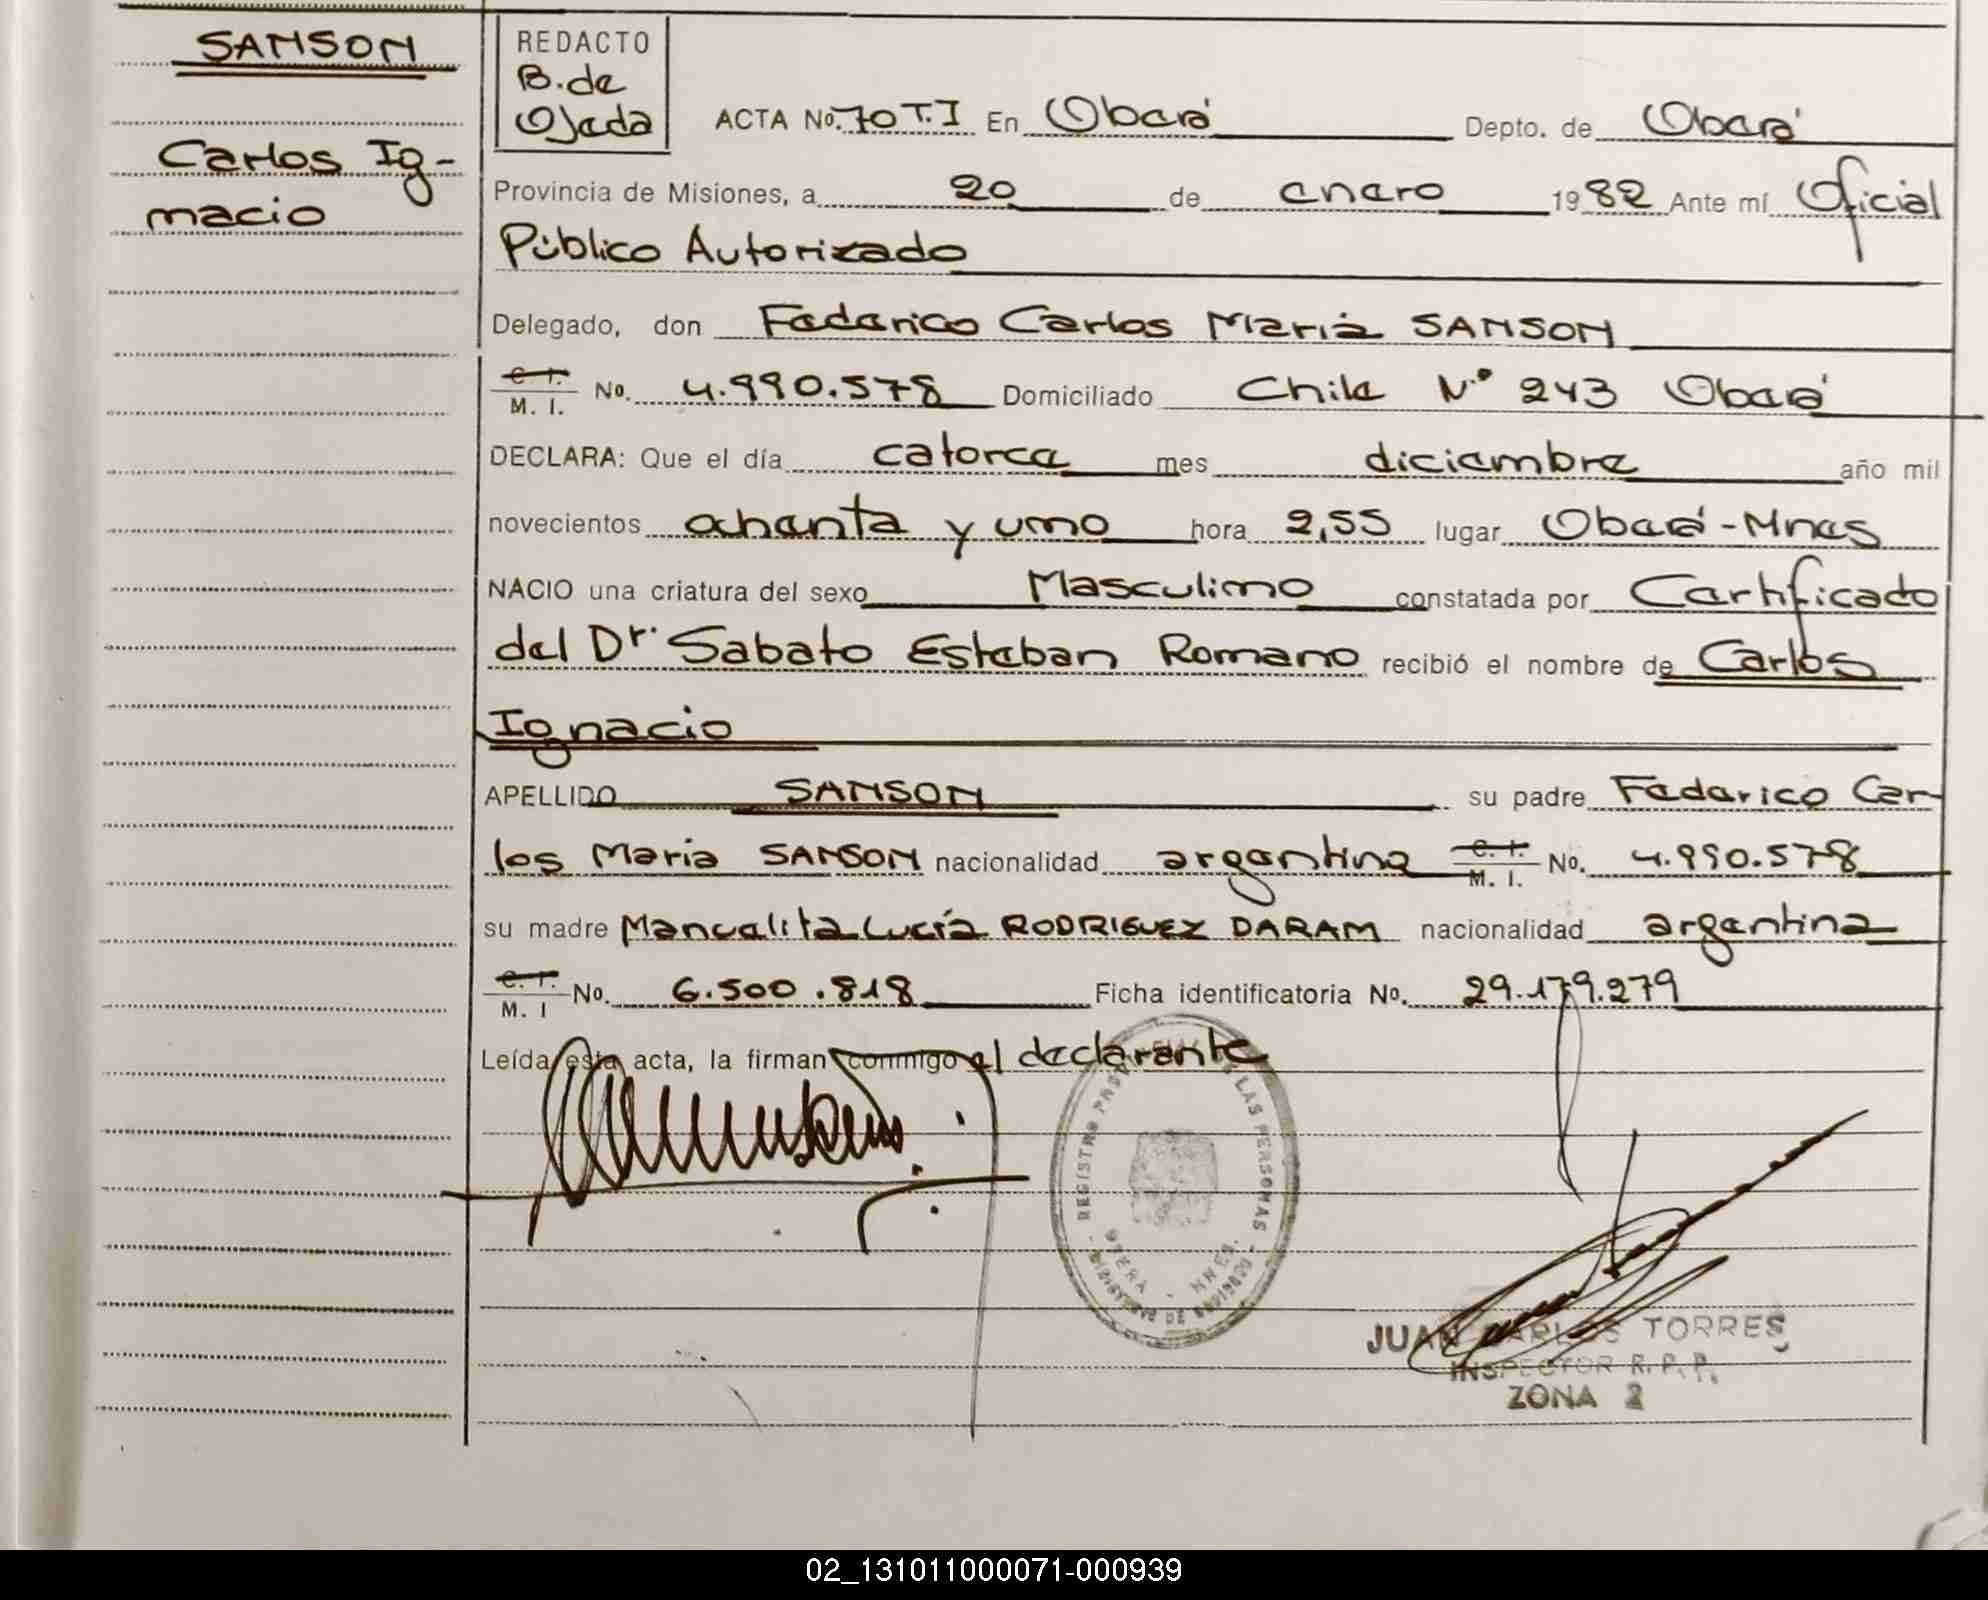 SANSON
Carlos Ig-
nacio
REDACTO
B. de
Ojeda
ACTA No. 70 T.I En Oberá Depto. de Oberá
Provincia de Misiones, a 20 de enero 1982 Ante mí Oficial
Público Autorizado
Delegado, don Federico Carlos María SANSON
C. I. M. I. No. 4.990.578 Domiciliado Chile N.º 243 Oberá
DECLARA: Que el día catorce mes diciembre año mil
novecientos ochenta y uno hora 2,55 lugar Oberá-Mnes
NACIO una criatura del sexo Masculino constatada por Certificado
del Dr. Sabato Esteban Romano recibió el nombre de Carlos
Ignacio
APELLIDO SANSON su padre Federico Car-
los Maria SANSON nacionalidad argentina C. I. M. I. No. 4.990.578
su madre Manuelita Lucía RODRIGUEZ DARAM nacionalidad argentina
C. I. M. I No. 6.500.818 Ficha identificatoria No. 29.179.279
Leída esta acta, la firman conmigo el declarante
REGISTRO DE LAS PERSONAS
OBERA - MNES.
JUAN CARLOS TORRES
INSPECTOR R. P. P.
ZONA 2
02_131011000071-000939